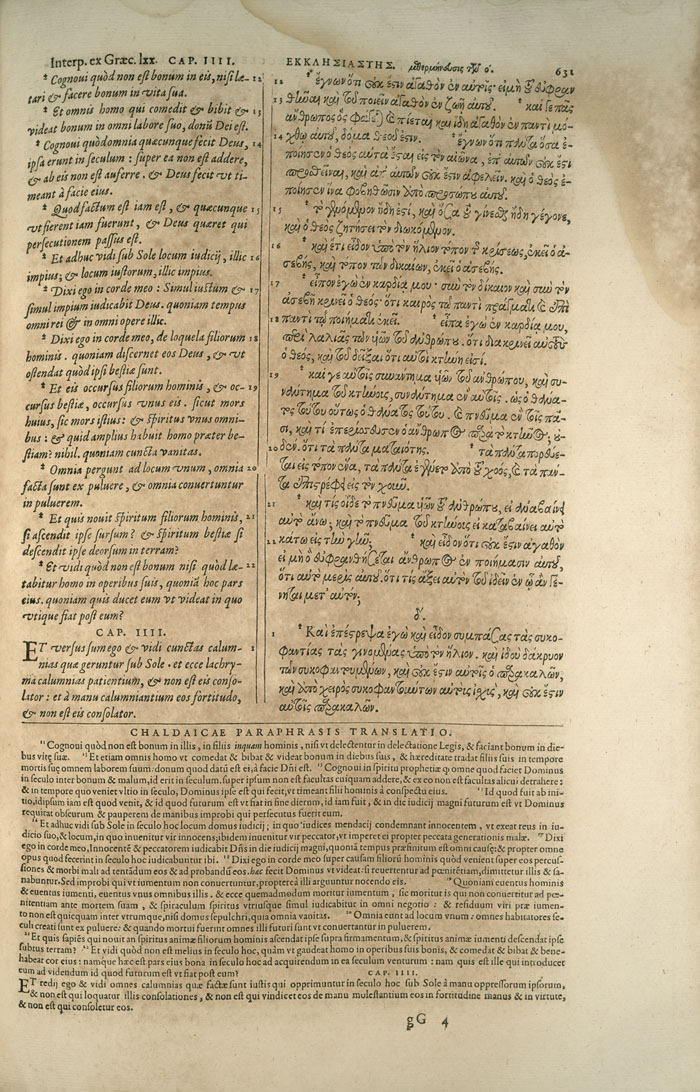 Interp. ex Græc. lxx. CAP. IIII.
* Cognoui quòd non est bonum in eis, nisi læ- 12
tari & facere bonum in vita sua.
* Et omnis homo qui comedit & bibit & 13
videat bonum in omni labore suo, donū Dei est.
* Cognoui quòd omnia quæcunque fecit Deus, 14
ipsa erunt in seculum: super ea non est addere,
& ab eis non est auferre. & Deus fecit vt ti-
meant à facie eius.
* Quod factum est iam est, & quæcunque 15
vt fierent iam fuerunt, & Deus quæret qui
persecutionem passus est.
* Et adhuc vidi sub Sole locum iudicij, illic 16
impius; & locum iustorum, illic impius.
* Dixi ego in corde meo: Simul iustum & 17
simul impium iudicabit Deus. quoniam tempus
omni rei & in omni opere illic.
* Dixi ego in corde meo, de loquela filiorum 18
hominis. quoniam discernet eos Deus, & vt
ostendat quòd ipsi bestiæ sunt.
* Et eis occursus filiorum hominis, & oc- 19
cursus bestiæ, occursus vnus eis. sicut mors
huius, sic mors istius: & spiritus vnus omni-
bus: & quid amplius habuit homo præter be-
stiam? nihil. quoniam cuncta vanitas.
* Omnia pergunt ad locum vnum, omnia 20
facta sunt ex puluere, & omnia conuertuntur
in puluerem.
* Et quis nouit spiritum filiorum hominis, 21
si ascendit ipse sursum? & spiritum bestiæ si
descendit ipse deorsum in terram?
* Et vidi quòd non est bonum nisi quòd læ- 22
tabitur homo in operibus suis, quoniā hoc pars
eius. quoniam quis ducet eum vt videat in quo
vtique fiat post eum?
CAP. IIII.
ET versus sum ego & vidi cunctas calum- 1
nias quæ geruntur sub Sole. et ecce lachry-
ma calumnias patientium, & non est eis conso-
lator: et à manu calumniantium eos fortitudo,
& non est eis consolator.
ΕΚΚΛΗΣΙΑΣΤΗΣ. 631
12 ἔγνων ὅτι οὐκ ἔστιν ἀγαθὸν ἐν αὐτοῖς· εἰ μὴ τοῦ εὐφραν
13 θῆναι καὶ τοῦ ποιεῖν ἀγαθὸν ἐν ζωῇ αὐτοῦ. * καί γε πᾶς
ἄνθρωπος ὃς φάγεται καὶ πίεται καὶ ἴδῃ ἀγαθὸν ἐν παντὶ μό-
14 χθῳ αὐτοῦ, δόμα θεοῦ ἐστιν. * ἔγνων ὅτι πάντα ὅσα ἐ-
ποίησεν ὁ θεὸς αὐτὰ ἔσται εἰς τὸν αἰῶνα, ἐπ' αὐτῶν οὐκ ἔστι
προσθεῖναι, καὶ ἀπ' αὐτῶν οὐκ ἔστιν ἀφελεῖν. καὶ ὁ θεὸς ἐ-
ποίησεν ἵνα φοβηθῶσιν ἀπὸ προσώπου αὐτοῦ.
15 * τὸ γενόμενον ἤδη ἐστὶ, καὶ ὅσα τοῦ γίνεσθαι ἤδη γέγονε,
καὶ ὁ θεὸς ζητήσει τὸν διωκόμενον.
16 * καὶ ἔτι εἶδον ὑπὸ τὸν ἥλιον τόπον τ͂ κρίσεως, ἐκεῖ ὁ ἀ-
σεβὴς, καὶ τόπον τῶν δικαίων, ἐκεῖ ὁ ἀσεβής.
17 * εἶπον ἐγὼ ἐν καρδίᾳ μου· σὺν τὸν δίκαιον καὶ σὺν τὸν
ἀσεβῆ κρινεῖ ὁ θεὸς· ὅτι καιρὸς τῷ παντὶ πράγματι καὶ ἐπὶ
18 παντὶ τῷ ποιήματι ἐκεῖ. * εἶπα ἐγὼ ἐν καρδίᾳ μου,
περὶ λαλιᾶς τῶν υἱῶν τοῦ ἀνθρώπου. ὅτι διακρινεῖ αὐτοὺς
ὁ θεὸς, καὶ τοῦ δεῖξαι ὅτι αὐτοὶ κτήνη εἰσί.
19 * καί γε αὐτοῖς συνάντημα υἱῶν τοῦ ἀνθρώπου, καὶ συ-
νάντημα τοῦ κτήνους, συνάντημα ἓν αὐτοῖς. ὡς ὁ θάνα-
τος τούτου οὕτως ὁ θάνατος τούτου. καὶ πνεῦμα ἓν τοῖς πᾶ-
σι, καὶ τί ἐπερίσσευσεν ὁ ἄνθρωπος παρὰ τὸ κτῆνος; οὐ-
20 δέν. ὅτι τὰ πάντα ματαιότης. * τὰ πάντα πορεύε-
ται εἰς τόπον ἕνα, τὰ πάντα ἐγένετο ἀπὸ τοῦ χοὸς, καὶ τὰ πάν-
τα ἐπιστρέφει εἰς τὸν χοῦν.
21 * καὶ τίς οἶδε τὸ πνεῦμα υἱῶν τοῦ ἀνθρώπου, εἰ ἀναβαίνει
αὐτὸ ἄνω; καὶ τὸ πνεῦμα τοῦ κτήνους εἰ καταβαίνει αὐτὸ
22 κάτω εἰς τὴν γῆν; * καὶ εἶδον ὅτι οὐκ ἔστιν ἀγαθὸν
εἰ μὴ ὃ εὐφρανθήσεται ἄνθρωπος ἐν ποιήμασιν αὐτοῦ,
ὅτι αὐτὸ μερὶς αὐτοῦ. ὅτι τίς ἄξει αὐτὸν τοῦ ἰδεῖν ἐν ᾧ ἂν γέ-
νηται μετ' αὐτόν;
δ'.
1 * Καὶ ἐπέστρεψα ἐγὼ καὶ εἶδον συμπάσας τὰς συκο-
φαντίας τὰς γινομένας ὑπὸ τὸν ἥλιον. καὶ ἰδοὺ δάκρυον
τῶν συκοφαντουμένων, καὶ οὐκ ἔστιν αὐτοῖς ὁ παρακαλῶν,
καὶ ἀπὸ χειρὸς συκοφαντούντων αὐτοὺς ἰσχὺς, καὶ οὐκ ἔστιν
αὐτοῖς παρακαλῶν.
CHALDAICAE PARAPHRASIS TRANSLATIO.
Cognoui quòd non est bonum in illis, in filiis inquam hominis, nisi vt delectentur in delectatione Legis, & faciant bonum in die-
bus vitę suæ. Et etiam omnis homo vt comedat & bibat & videat bonum in diebus suis, & hæreditate tradat filiis suis in tempore
mortis suę omnem laborem suum: donum quod datū est ei, à facie Dñi est. Cognoui in spiritu prophetiæ qʒ omne quod faciet Dominus
in seculo inter bonum & malum, id erit in seculum. super ipsum non est facultas cuiquam addere, & ex eo non est facultas alicui detrahere:
& in tempore quo veniet vltio in seculo, Dominus ipse est qui fecit, vt timeant filii hominis à conspectu eius. Id quod fuit ab ini-
tio, idipsum iam est quod venit, & id quod futurum est vt fiat in fine dierum, id iam fuit, & in die iudicij magni futurum est vt Dominus
requirat obscurum & pauperem de manibus improbi qui persecutus fuerit eum.
Et adhuc vidi sub Sole in seculo hoc locum domus iudicij; in quo iudices mendacij condemnant innocentem, vt exeat reus in iu-
dicio suo, & locum, in quo inuenitur vir innocens; ibidem inuenitur vir peccator, vt imperet ei propter peccata generationis malæ. Dixi
ego in corde meo, Innocentē & peccatorem iudicabit Dñs in die iudicij magni, quoniā tempus præfinitum est omni causę: & propter omne
opus quod fecerint in seculo hoc iudicabuntur ibi. Dixi ego in corde meo super causam filiorū hominis quòd venient super eos percus-
siones & morbi mali ad tentādum eos & ad probandū eos. hæc fecit Dominus vt videat: si reuertentur ad pœnitētiam, dimittetur illis & sa-
nabuntur. Sed improbi qui vt iumentum non conuertuntur, propterea illi arguuntur nocendo eis. Quoniam euentus hominis
& euentus iumenti, euentus vnus omnibus illis. & ecce quemadmodum moritur iumentum, sic moritur is qui non conuertitur ad pœ-
nitentiam ante mortem suam, & spiraculum spiritus vtriusque simul iudicabitur in omni negotio: & residuum viri præ iumen-
to non est quicquam inter vtrumque, nisi domus sepulchri, quia omnia vanitas. Omnia eunt ad locum vnum: omnes habitatores se-
culi creati sunt ex puluere: & quando mortui fuerint omnes illi futuri sunt vt conuertantur in puluerem.
Et quis sapiēs qui nouit an spiritus animæ filiorum hominis ascendat ipse supra firmamentum, & spiritus animæ iumenti descendat ipse
subtus terram? Et vidi quòd non est melius in seculo hoc, quàm vt gaudeat homo in operibus suis bonis, & comedat & bibat & bene-
habeat cor eius: namque hæc est pars eius bona in seculo hoc ad acquirendum in ea seculum venturum: nam quis est ille qui introducet
eum ad videndum id quod futurum est vt fiat post eum? CAP. IIII.
ET redij ego & vidi omnes calumnias quæ factæ sunt iustis qui opprimuntur in seculo hoc sub Sole à manu oppressorum ipsorum,
& non est qui loquatur illis consolationes, & non est qui vindicet eos de manu molestantium eos in fortitudine manus & in virtute,
& non est qui consoletur eos.
gG 4